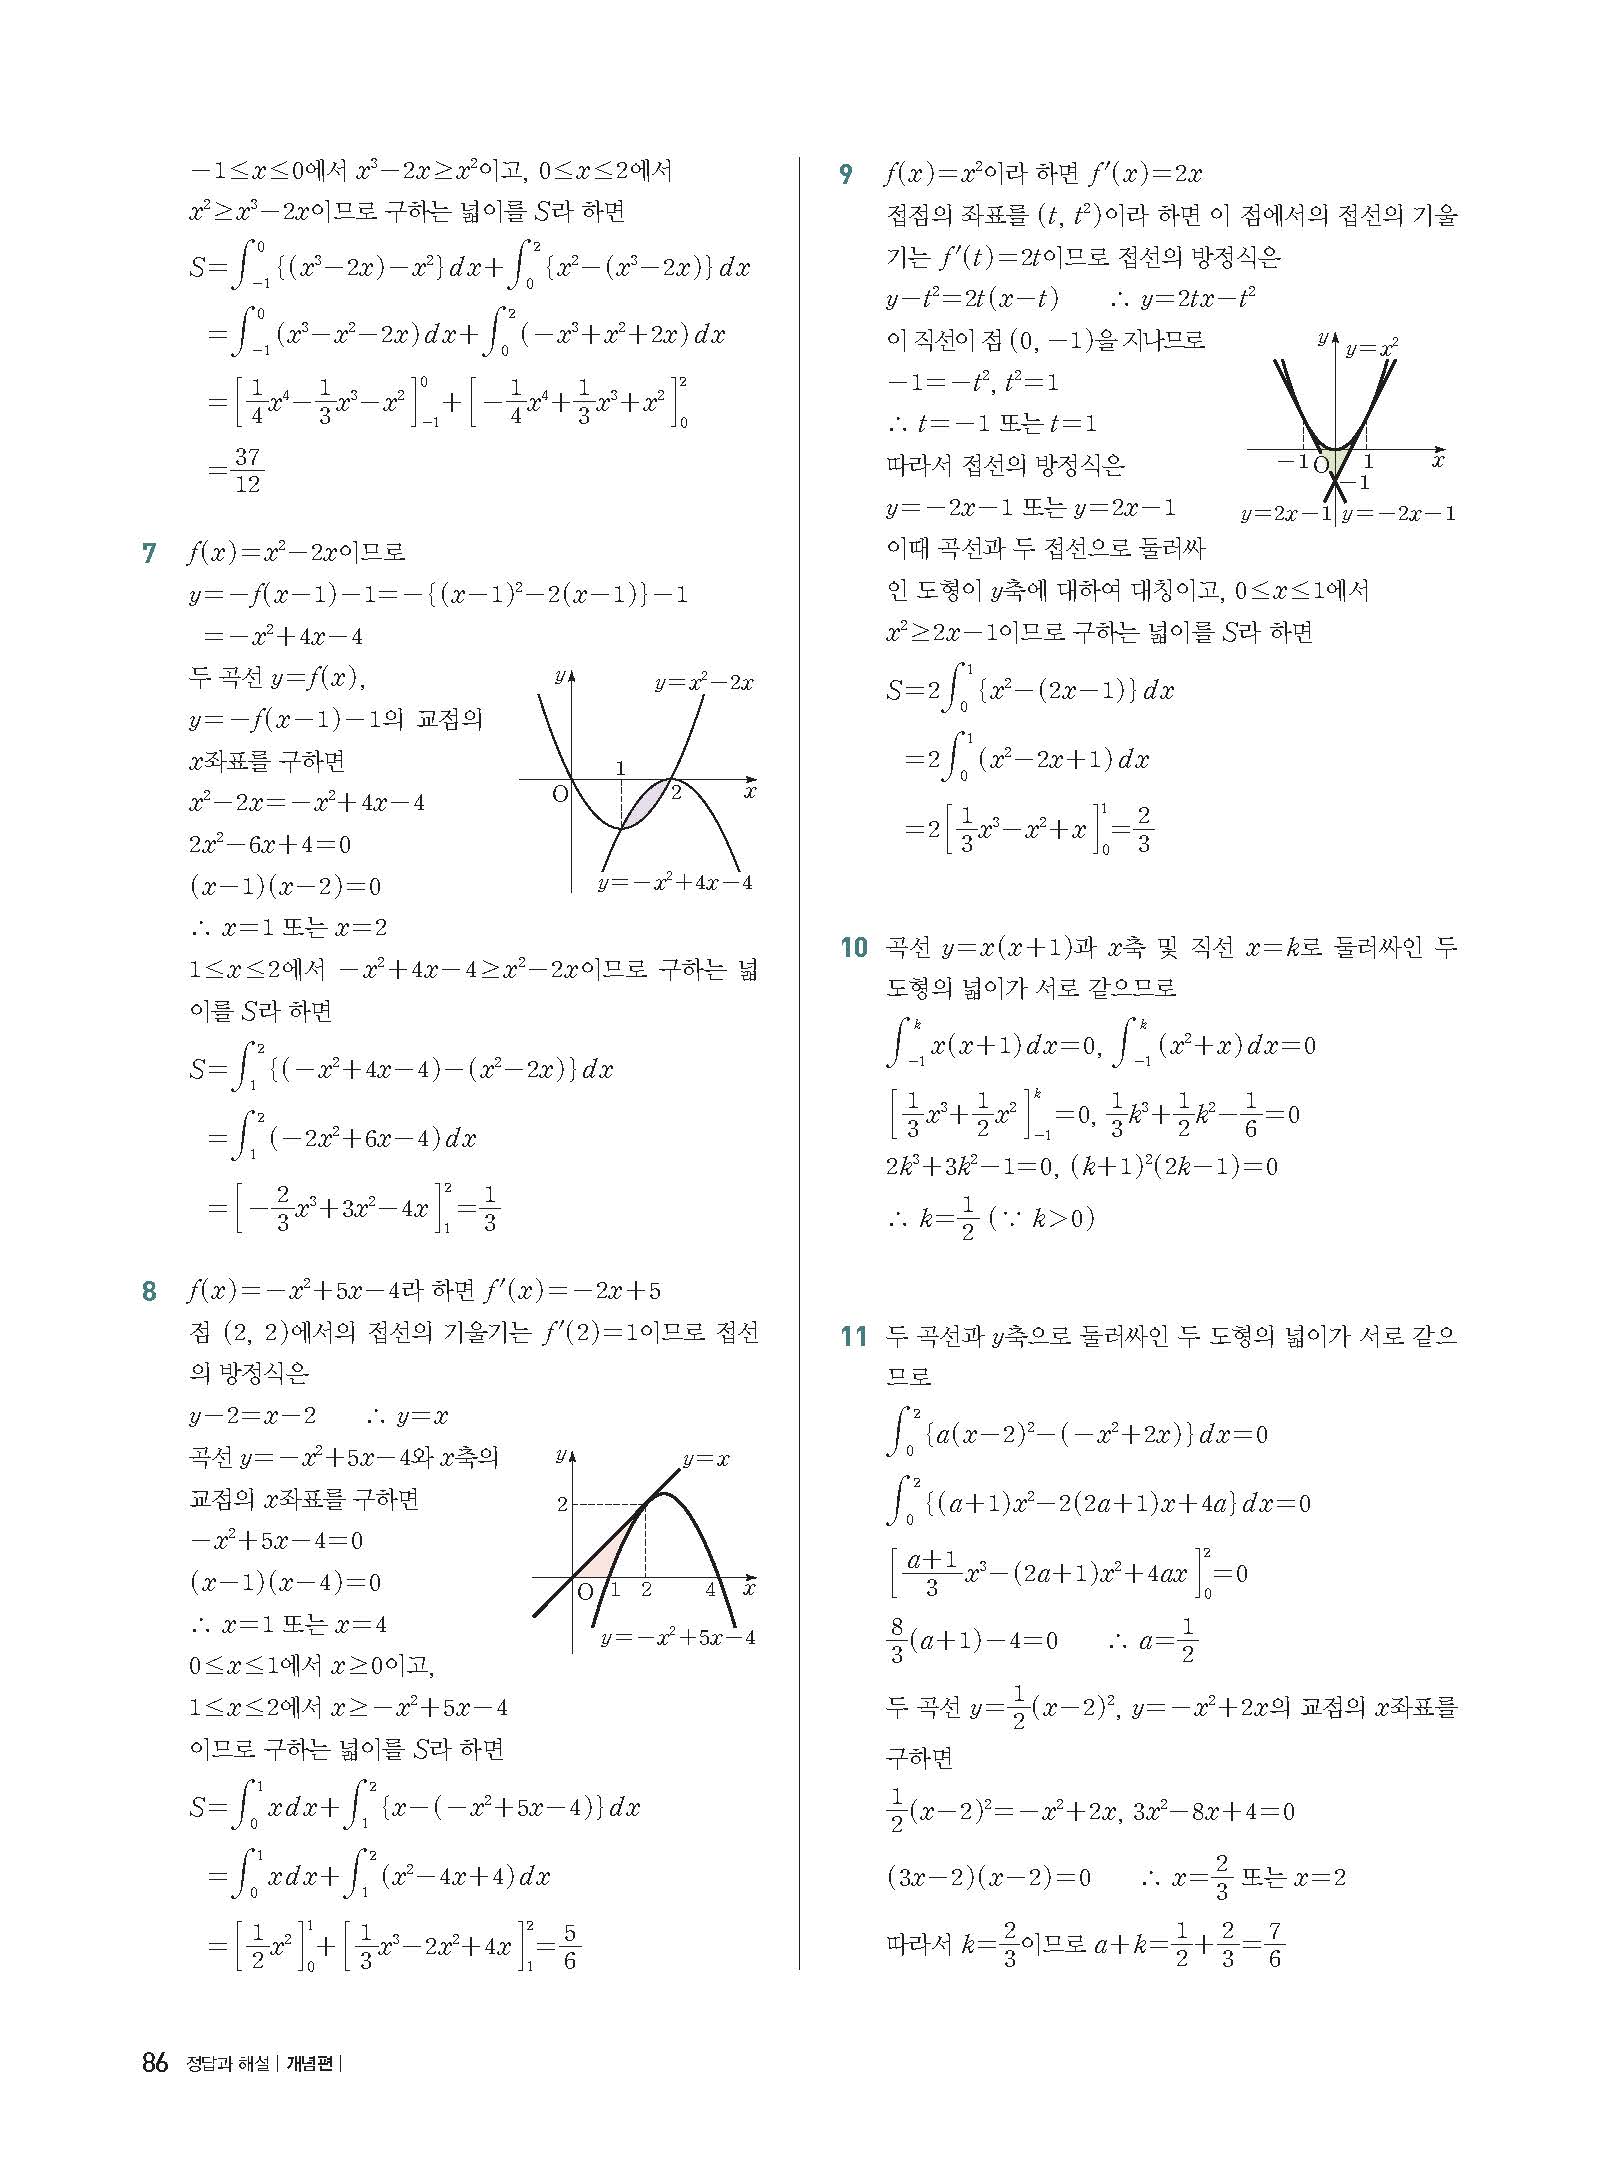 −1≤x≤0에서 x³−2x≥x²이고, 0≤x≤2에서
x²≥x³−2x이므로 구하는 넓이를 S라 하면
S=∫_{−1}^{0} {(x³−2x)−x²}dx+∫_{0}^{2} {x²−(x³−2x)}dx
=∫_{−1}^{0} (x³−x²−2x)dx+∫_{0}^{2} (−x³+x²+2x)dx
=[1/4 x⁴−1/3 x³−x²]_{−1}^{0}+[−1/4 x⁴+1/3 x³+x²]_{0}^{2}
=37/12
7 f(x)=x²−2x이므로
y=−f(x−1)−1=−{(x−1)²−2(x−1)}−1
=−x²+4x−4
두 곡선 y=f(x),
y=−f(x−1)−1의 교점의
x좌표를 구하면
x²−2x=−x²+4x−4
2x²−6x+4=0
(x−1)(x−2)=0
∴ x=1 또는 x=2
y
y=x²−2x
1
O
2
x
y=−x²+4x−4
1≤x≤2에서 −x²+4x−4≥x²−2x이므로 구하는 넓
이를 S라 하면
S=∫_{1}^{2} {(−x²+4x−4)−(x²−2x)}dx
=∫_{1}^{2} (−2x²+6x−4)dx
=[−2/3 x³+3x²−4x]_{1}^{2}=1/3
8 f(x)=−x²+5x−4라 하면 f′(x)=−2x+5
점 (2, 2)에서의 접선의 기울기는 f′(2)=1이므로 접선
의 방정식은
y−2=x−2 ∴ y=x
곡선 y=−x²+5x−4와 x축의
교점의 x좌표를 구하면
−x²+5x−4=0
(x−1)(x−4)=0
∴ x=1 또는 x=4
0≤x≤1에서 x≥0이고,
1≤x≤2에서 x≥−x²+5x−4
이므로 구하는 넓이를 S라 하면
y
y=x
2
O 1 2 4 x
y=−x²+5x−4
S=∫_{0}^{1} xdx+∫_{1}^{2} {x−(−x²+5x−4)}dx
=∫_{0}^{1} xdx+∫_{1}^{2} (x²−4x+4)dx
=[1/2 x²]_{0}^{1}+[1/3 x³−2x²+4x]_{1}^{2}=5/6
9 f(x)=x²이라 하면 f′(x)=2x
접점의 좌표를 (t, t²)이라 하면 이 점에서의 접선의 기울
기는 f′(t)=2t이므로 접선의 방정식은
y−t²=2t(x−t) ∴ y=2tx−t²
이 직선이 점 (0, −1)을 지나므로
−1=−t², t²=1
∴ t=−1 또는 t=1
따라서 접선의 방정식은
y=−2x−1 또는 y=2x−1
이때 곡선과 두 접선으로 둘러싸
y
y=x²
−1 O 1 x
−1
y=2x−1 y=−2x−1
인 도형이 y축에 대하여 대칭이고, 0≤x≤1에서
x²≥2x−1이므로 구하는 넓이를 S라 하면
S=2∫_{0}^{1} {x²−(2x−1)}dx
=2∫_{0}^{1} (x²−2x+1)dx
=2[1/3 x³−x²+x]_{0}^{1}=2/3
10 곡선 y=x(x+1)과 x축 및 직선 x=k로 둘러싸인 두
도형의 넓이가 서로 같으므로
∫_{−1}^{k} x(x+1)dx=0, ∫_{−1}^{k} (x²+x)dx=0
[1/3 x³+1/2 x²]_{−1}^{k}=0, 1/3 k³+1/2 k²−1/6=0
2k³+3k²−1=0, (k+1)²(2k−1)=0
∴ k=1/2 (∵ k>0)
11 두 곡선과 y축으로 둘러싸인 두 도형의 넓이가 서로 같으
므로
∫_{0}^{2} {a(x−2)²−(−x²+2x)}dx=0
∫_{0}^{2} {(a+1)x²−2(2a+1)x+4a}dx=0
[(a+1)/3 x³−(2a+1)x²+4ax]_{0}^{2}=0
8/3(a+1)−4=0 ∴ a=1/2
두 곡선 y=1/2(x−2)², y=−x²+2x의 교점의 x좌표를
구하면
1/2(x−2)²=−x²+2x, 3x²−8x+4=0
(3x−2)(x−2)=0 ∴ x=2/3 또는 x=2
따라서 k=2/3이므로 a+k=1/2+2/3=7/6
86 정답과 해설 | 개념편 |